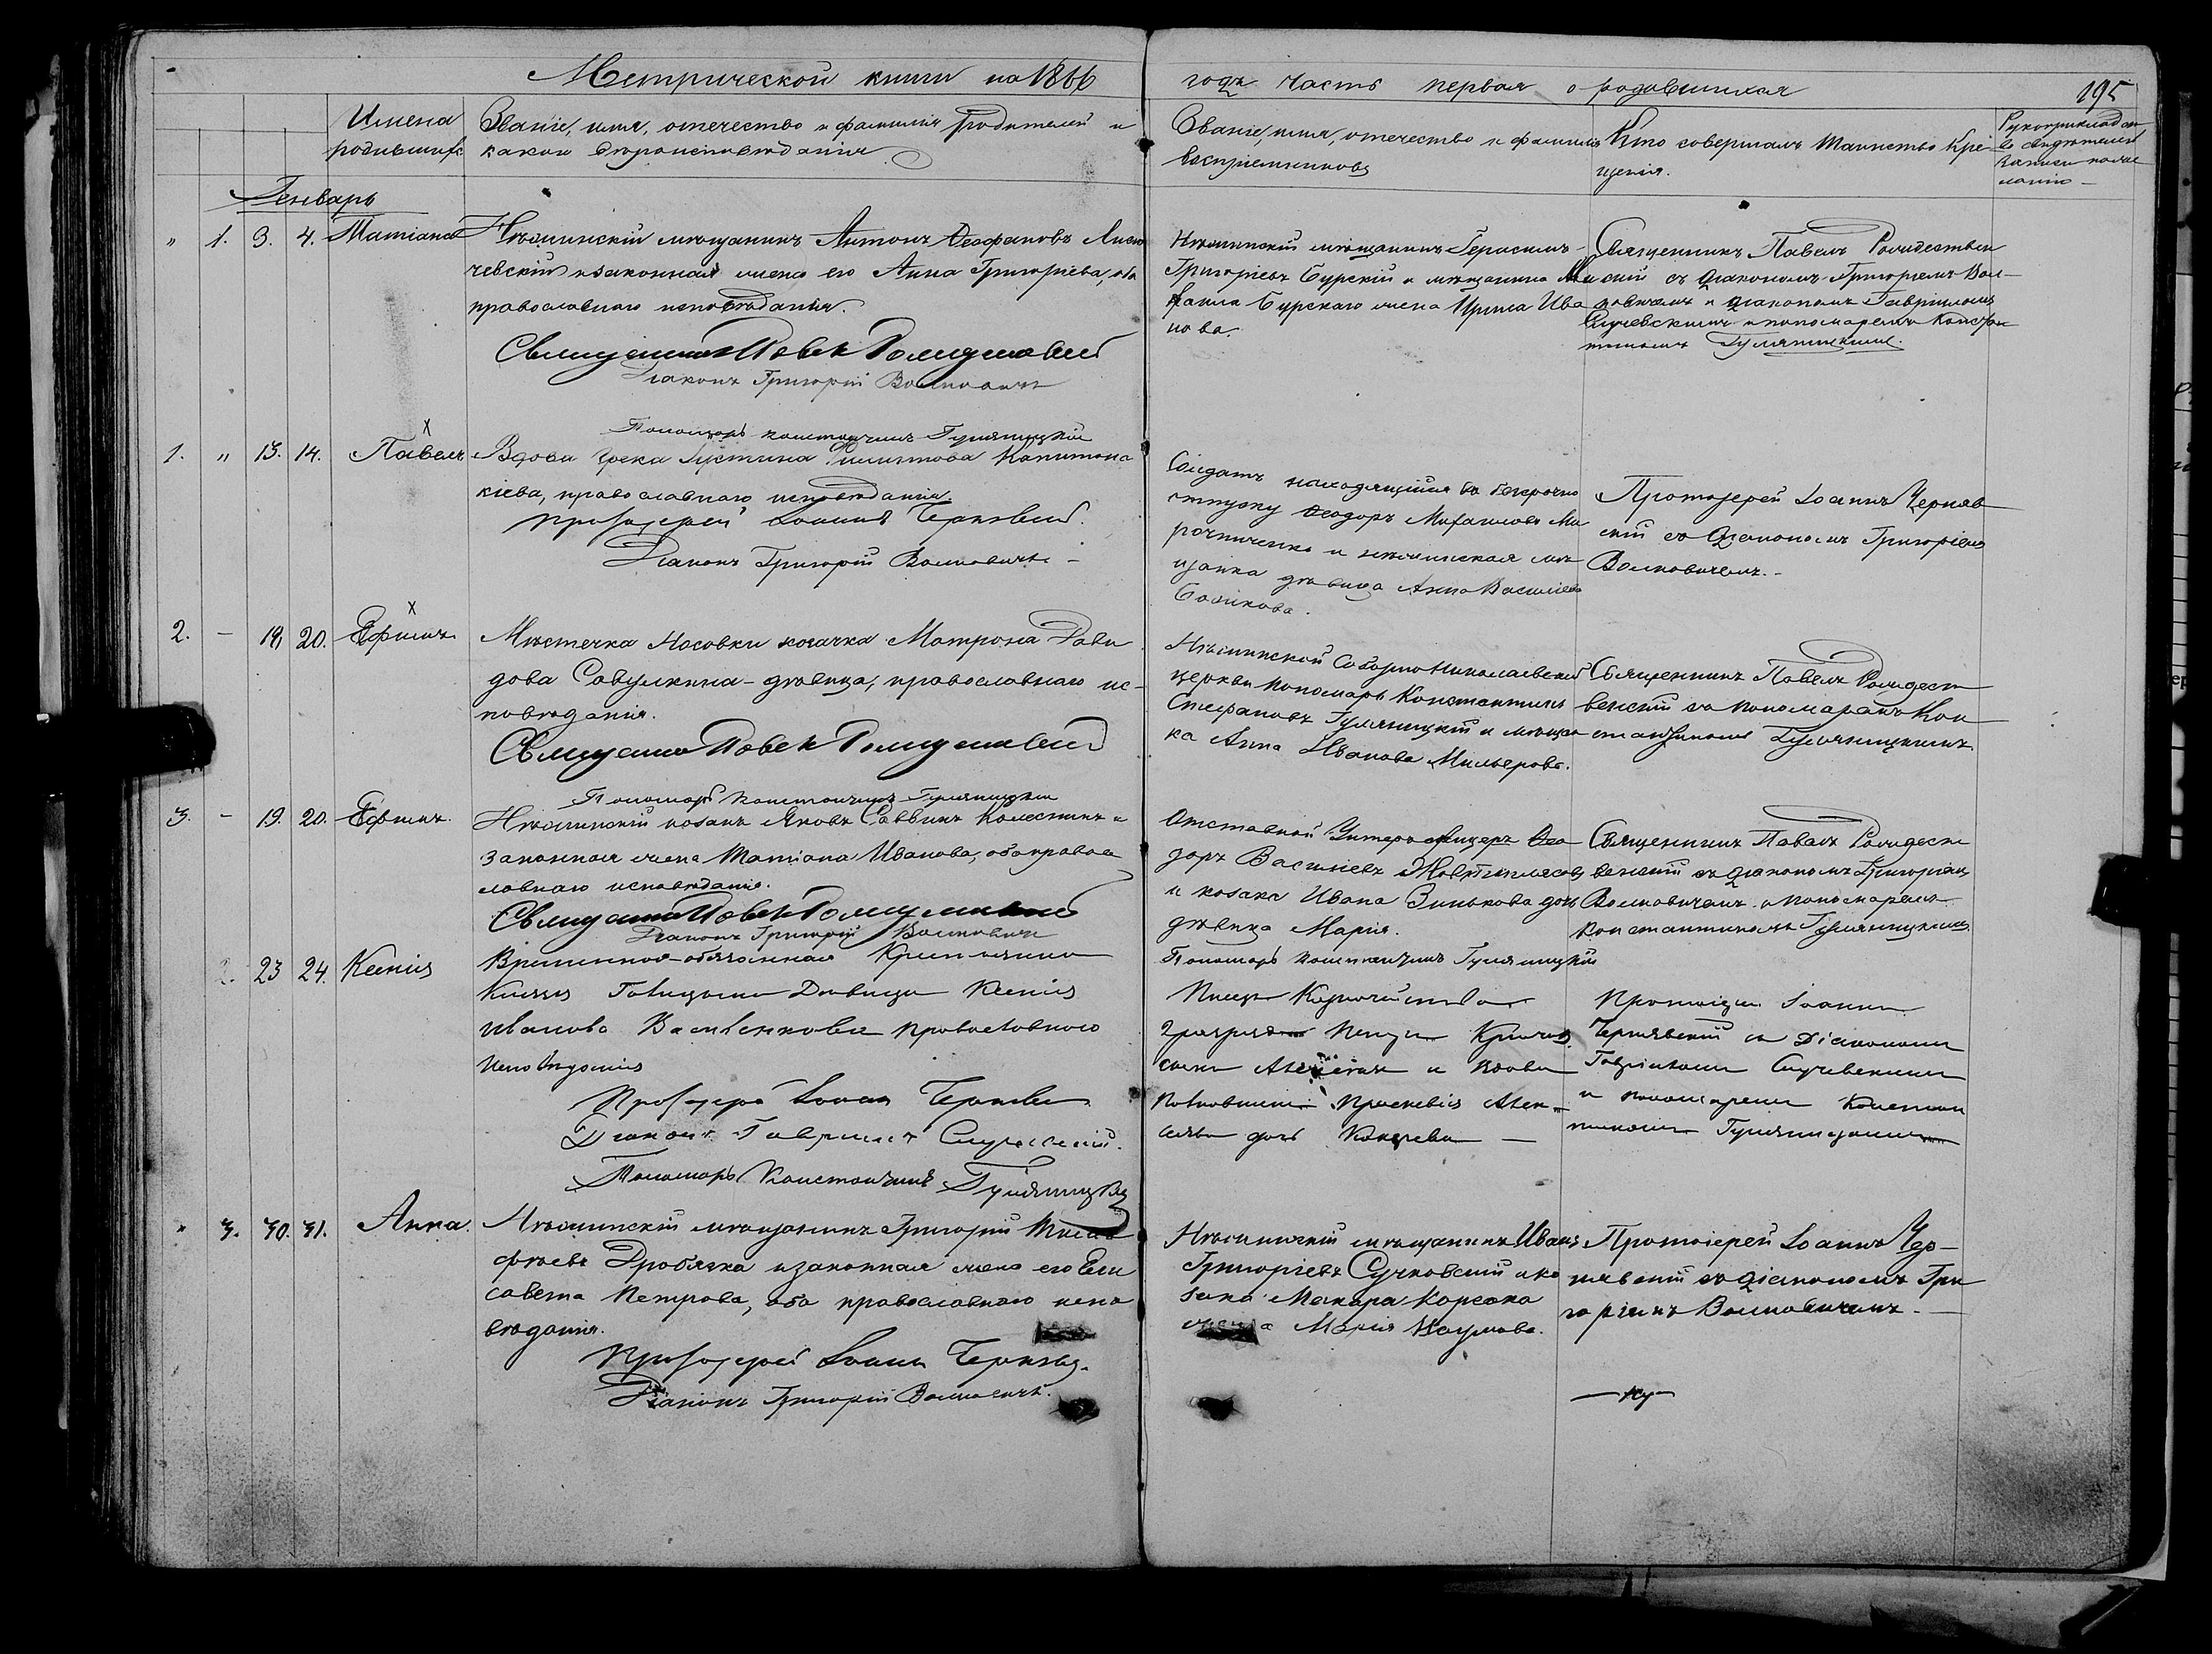 Метрической книги на 1866
годъ часть первая о родившихся
195
Имена родившихся
Званіе, имя, отечество и фамилія родителей и
какого вѣроисповѣданія
Званіе, имя, отечество и фамилія
воспріемниковъ
Кто совершалъ таинство Кре
щенія.
Рукоприкладст
во свидѣтелей
записи по же
ланію
Генварь
" 1. 3. 4. Татіана
Нѣжинскій мѣщанинъ Антонъ Ѳеофановъ
чевскій и законная жена его Анна Григоріева, оба
православнаго исповѣданія.
Священникъ Павелъ Рождественскій
Діаконъ Григорій Волковичъ
Пономарь Константинъ Гуляницкій
Нѣжинскій мѣщанинъ Герасимъ
Григорьевъ Бурскій и мѣщанина Ми
хаила Бурскаго жена Ирина Ива
нова.
Священникъ Павелъ Рождествен
скій съ діакономъ Григоріемъ Вол
ковичемъ и діакономъ Гавріиломъ
и пономаремъ Констан
тиномъ Гуляницкимъ.
1. " 13. 14. Павелъ
х
Вдова грека Іустина Филиппова
кіева, православнаго исповѣданія.
Протоіерей Іоаннъ Чернявскій.
Діаконъ Григорій Волковичъ
Солдатъ находящійся въ безсрочно
отпуску Ѳеодоръ Михаиловъ Ми
рочниченко и нѣжинская мѣ
щанка дѣвица Анна Васильева
Божкова.
Протоіерей Іоаннъ Черняв
скій съ Діакономъ Григоріемъ
Волковичемъ.
2. - 19. 20. Ефимъ
х
Мѣстечка Носовки козачка Матрона Дави
дова Савулкина - дѣвица, православнаго ис-
повѣданія.
Священникъ Павелъ Рождественскій
Пономарь Константинъ Гуляницкій
Нѣжинской Соборно Николаевской
церкви пономарь Константинъ
Стефановъ Гуляницкій и мѣщан
ка Анна Иванова Мильерова.
Священникъ Павелъ Рождест
венскій съ пономаремъ Кон
стантиномъ Гуляницкимъ
3. - 19. 20. Ефимъ.
Нѣжинскій козакъ Яковъ Саввинъ Колесникъ и
законная жена Татіана Иванова, оба правос
лавнаго исповѣданія.
Священникъ Павелъ Рождественскій
Діаконъ Григорій Волковичъ
Пономарь Константинъ Гуляницкій
Отставной Унтеръ офицеръ Ѳео
доръ Васильевъ
и козака Ивана Зинькова дочь
дѣвица Марія.
Священникъ Павелъ Рождест
венскій съ діакономъ Григоріемъ
Волковичемъ и пономаремъ
Константиномъ Гуляницкимъ.
2. 23 24. Ксенія
Временно-обязанная Крестьянка
Князя Голицына Дѣвица Ксенія
Иванова православнаго
исповѣданія
Протоіерей Іоаннъ Чернявскій
Діаконъ Гавріилъ
Пономарь Константинъ Гуляницкій
Писецъ Казначейства
и вдова
Полковника
дочь
Протоіерей Іоаннъ
Чернявскій съ Діакономъ
Гавріиломъ
и пономаремъ Констан
тиномъ Гуляницкимъ
" 3. 30. 31. Анна.
Нѣжинскій мѣщанинъ Григорій Тимо
фѣевъ Дробязка и законная жена его Ели
савета Петрова, оба православнаго испо
вѣданія.
Протоіерей Іоаннъ Чернявскій.
Діаконъ Григорій Волковичъ.
Нѣжинскій мѣщанинъ Иванъ
Григорьевъ Сучковскій и ко
зака Макара Корсака
жена Марія Наумова.
Протоіерей Іоаннъ Чер-
нявскій съ діакономъ Гри
горіемъ Волковичемъ.